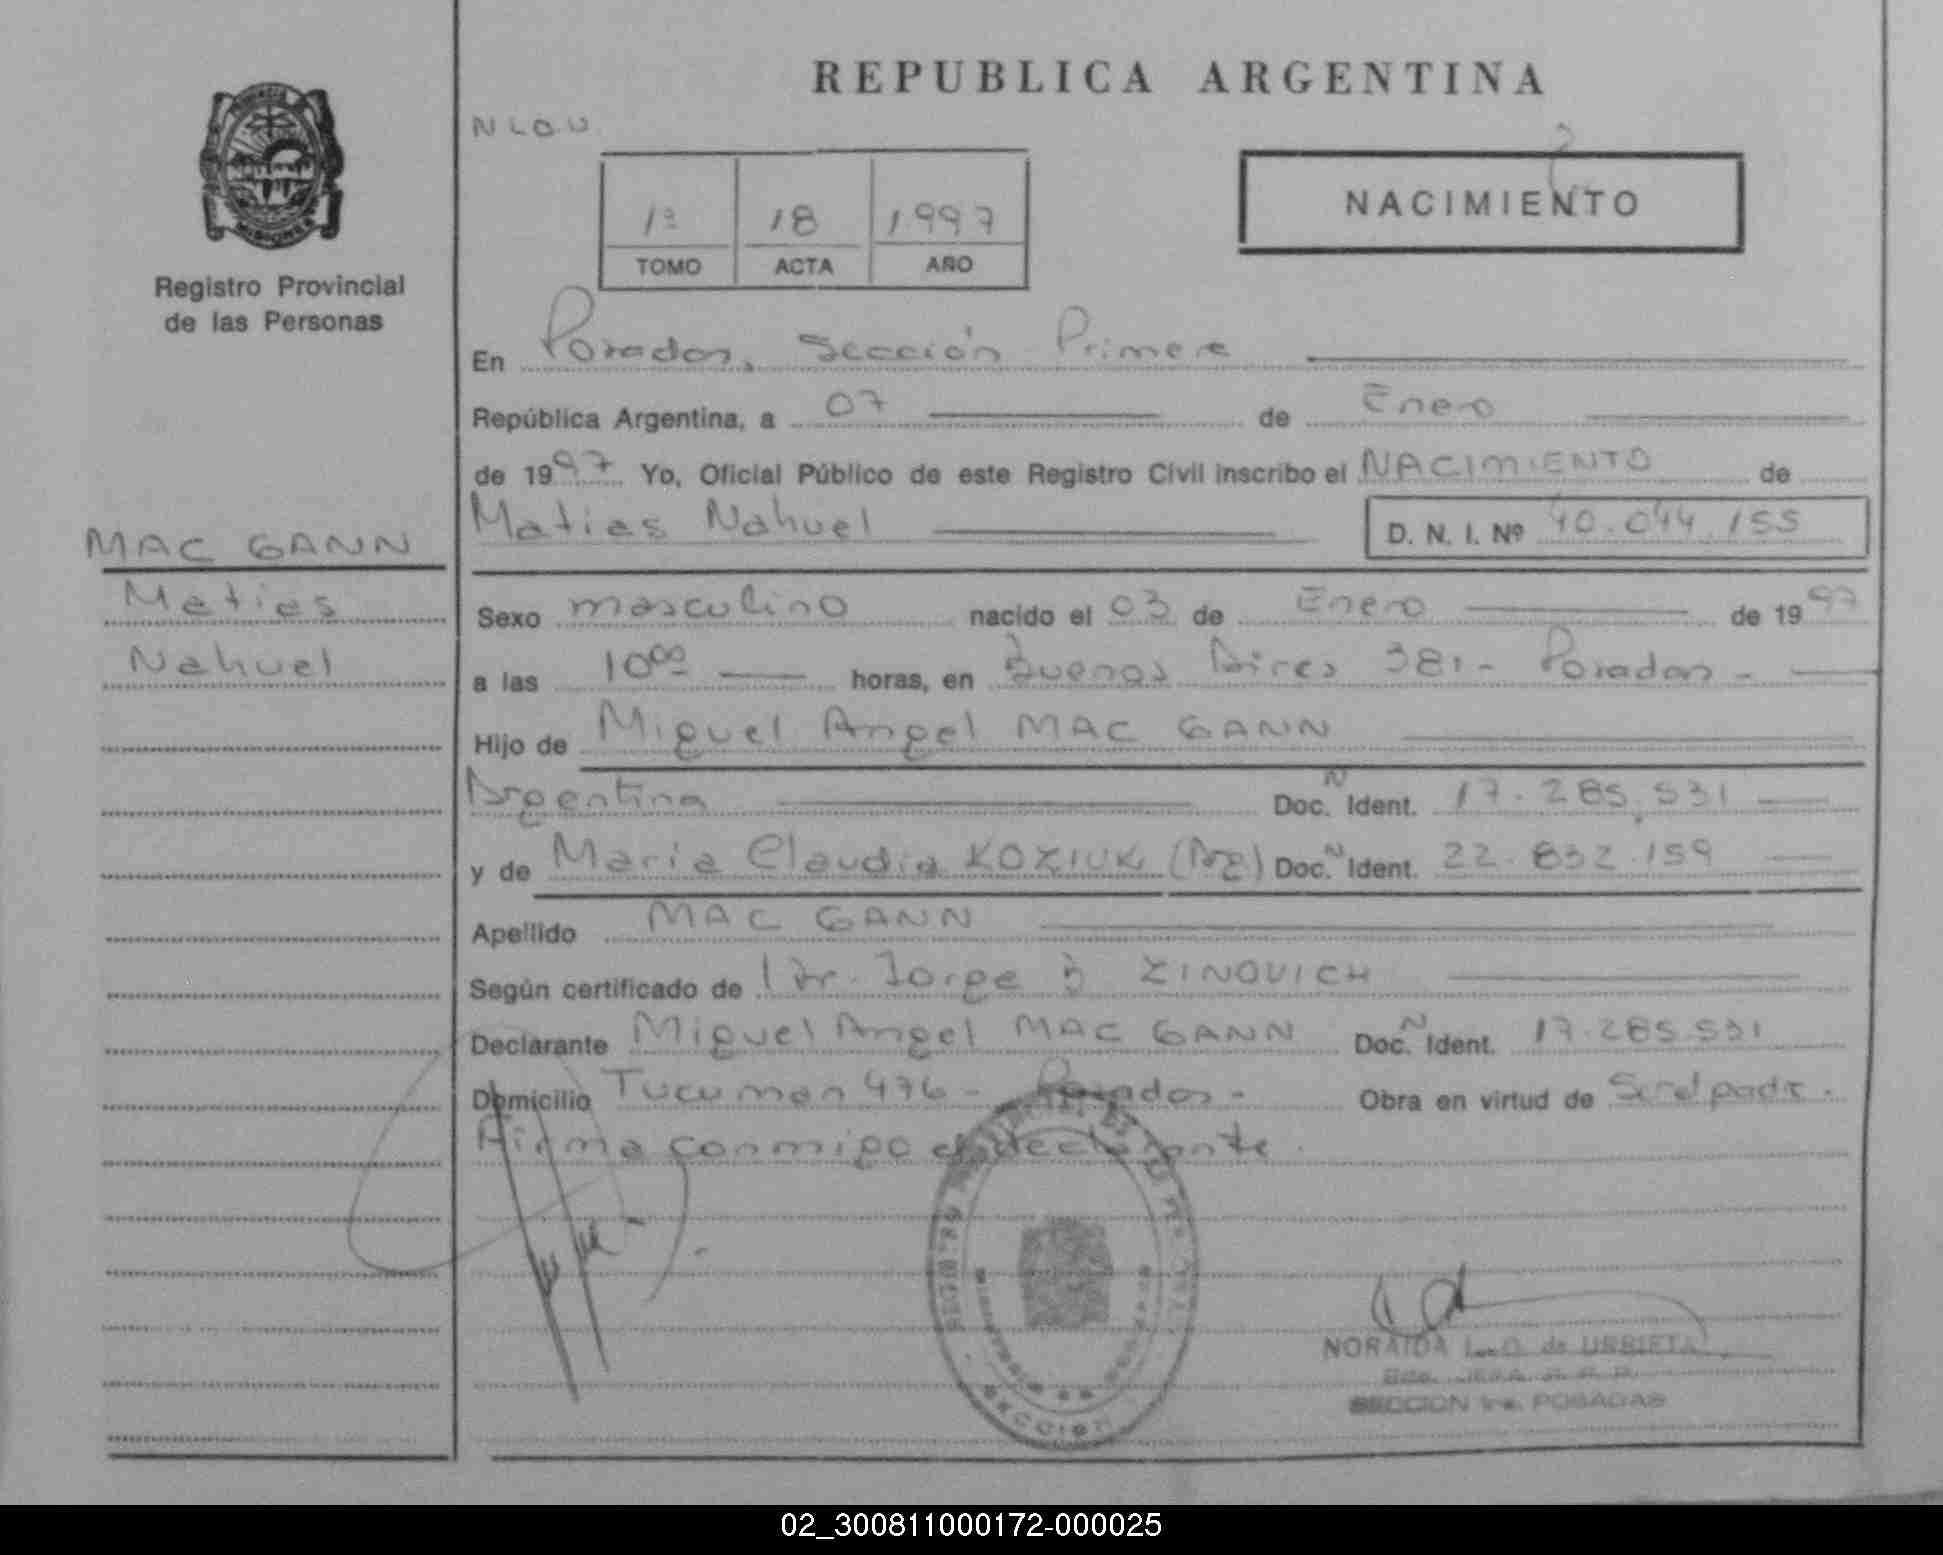 REPUBLICA ARGENTINA
N L O U
1º 18 1997
TOMO ACTA AÑO
NACIMIENTO
Registro Provincial
de las Personas
En Posadas, Sección Primera
República Argentina, a 07 de Enero
de 1997 Yo, Oficial Público de este Registro Civil inscribo el NACIMIENTO de
Matias Nahuel D. N. I. Nº 40.044.155
MAC GANN
Matias
Nahuel
Sexo masculino nacido el 03 de Enero de 1997
a las 10⁰⁰ horas, en Buenos Aires 381 - Posadas -
Hijo de Miguel Angel MAC GANN
Argentina Doc. N Ident. 17.285.531
y de Maria Claudia KOZIUK (Arg) Doc. N Ident. 22.832.159
Apellido MAC GANN
Según certificado de Dr. Jorge ZINOVICH
Declarante Miguel Angel MAC GANN Doc. N Ident. 17.285.531
Domicilio Tucuman 476 - Posadas - Obra en virtud de
Firma conmigo el declarante.
NORAIDA L. O. de URRIETA
SECCION 1ra. POSADAS
02_300811000172-000025